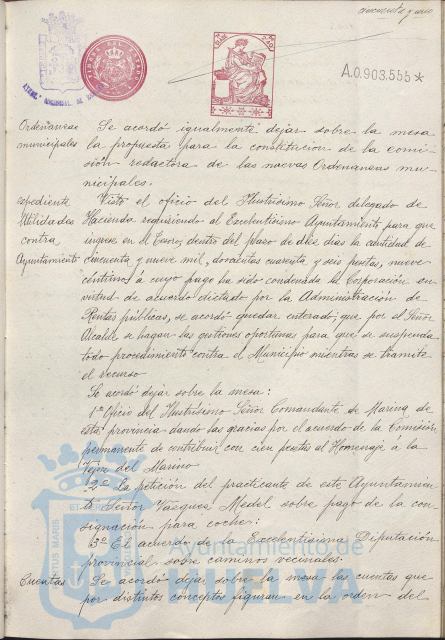 cincuenta y uno
A.0.903.555*
Ordenanzas
municipales
Se acordó igualmente dejar sobre la mesa
la propuesta para la constitucion de la comi-
sión redactora de las nuevas Ordenanzas mu-
nicipales.
expediente
Utilidades
contra
Ayuntamiento
Visto el oficio del Ilustrisimo Señor delegado de
Hacienda requiriendo al Excelentisimo Ayuntamiento para que
ingrese en el Tesoro, dentro del plazo de diez dias la cantidad de
cincuenta y nueve mil, doscientas cuarenta y seis pesetas, nueve
céntimos á cuyo pago ha sido condenada la Corporación en
virtud de acuerdo dictado por la Administración de
Rentas públicas, se acordó quedar enterado, que por el Señor
Alcalde se hagan las gestiones oportunas para que se suspenda
todo procedimiento contra el Municipio mientras se tramite
el recurso
Se acordó dejar sobre la mesa:
1º Oficio del Ilustrisimo Señor Comandante de Marina de
esta provincia dando las gracias por el acuerdo de la Comisión
permanente de contribuir con cien pesetas al Homenaje á la
Vejez del Marino
2º La petición del practicante de este Ayuntamien-
to Señor Vazquez Medel sobre pago de la con-
signación para coche:
3º El acuerdo de la Excelentisima Diputación
provincial sobre caminos vecinales.
Cuentas
Se acordó dejar sobre la mesa las cuentas que
por distintos conceptos figuran en la orden del
PORTUS MARIS
Ayuntamiento de
HUELVA